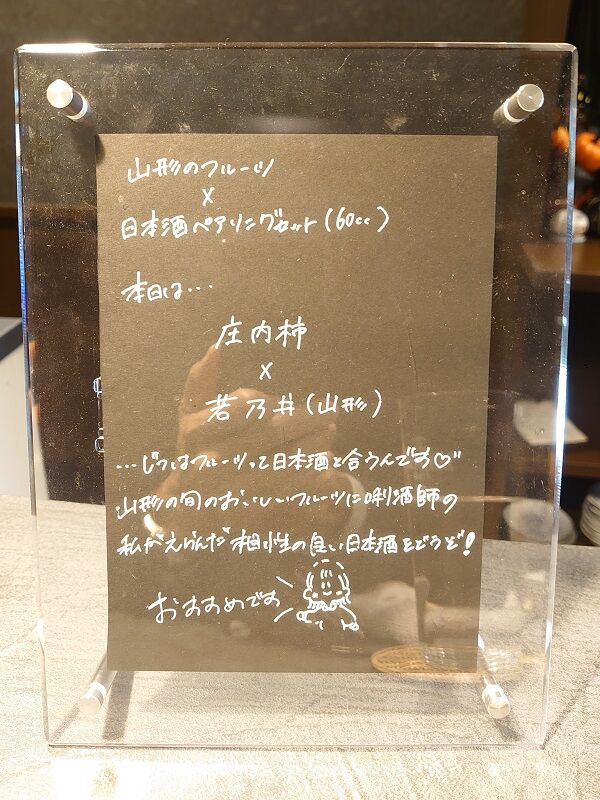 山形のフルーツ
×
日本酒ペアリングセット(60cc)
本日は…
庄内柿
×
若乃井(山形)
…じつはフルーツって日本酒と合うんです♡"
山形の旬のおいしいフルーツに唎酒師の
私がえらんだ相性の良い日本酒をどうぞ!
おすすめです